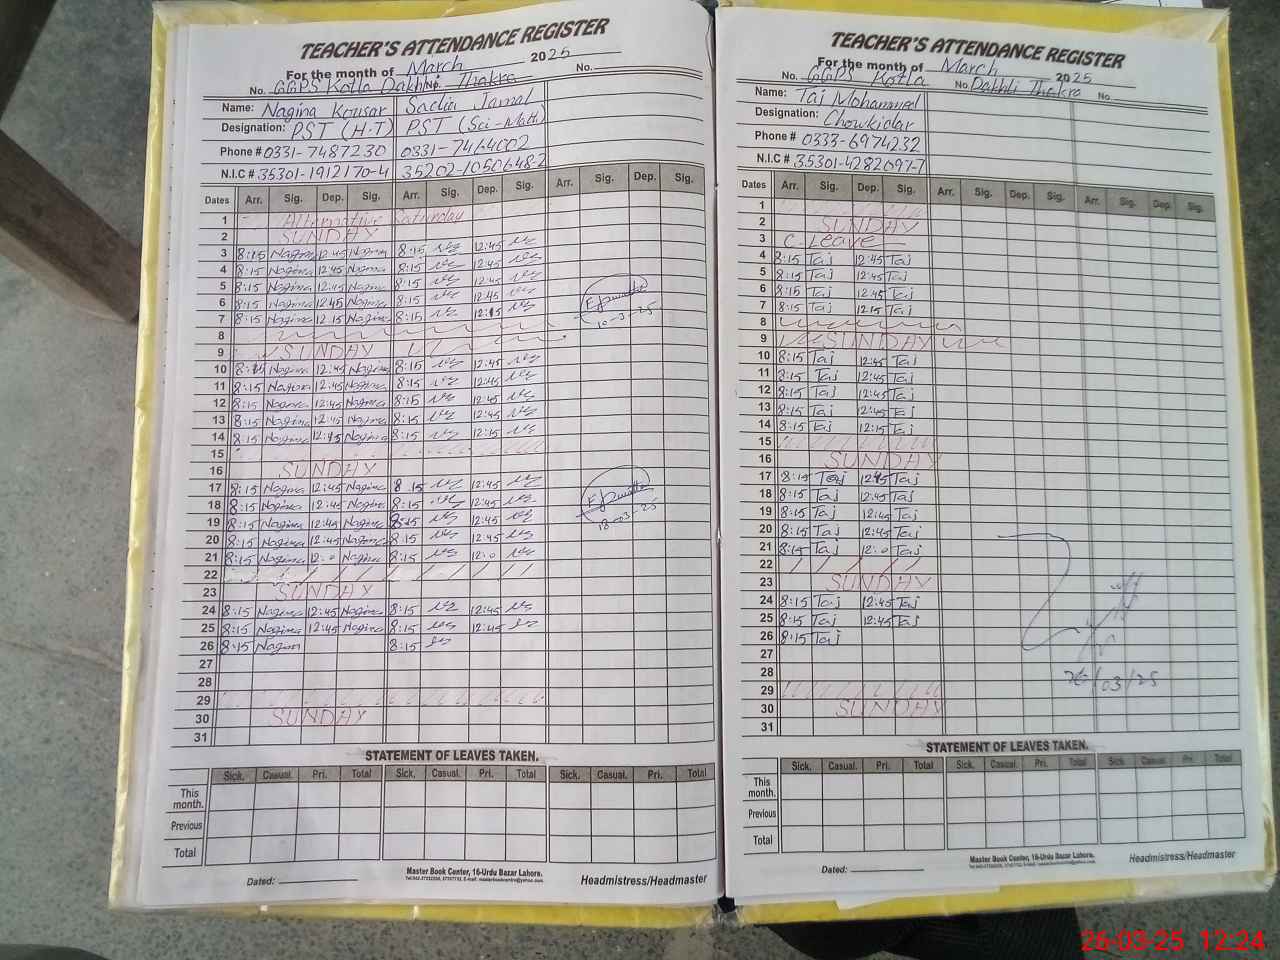 TEACHER'S ATTENDANCE REGISTER
For the month of March 2025
No. GGPS Kotla Dakhli No. Thakra No.
Name: Nagina Kousar Sadia Jamal
Designation: PST (H.T) PST (Sci-Math)
Phone # 0331-7487230 0331-7464002
N.I.C # 35301-1912170-4 35202-1050648-2
Dates Arr. Sig. Dep. Sig. Arr. Sig. Dep. Sig. Arr. Sig. Dep. Sig.
1 Alternative Saturday
2 SUNDAY
3 8:15 Nagina 12:45 Nagina 8:15 12:45
4 8:15 Nagina 12:45 Nagina 8:15 12:45
5 8:15 Nagina 12:45 Nagina 8:15 12:45
6 8:15 Nagina 12:45 Nagina 8:15 12:45
7 8:15 Nagina 12:15 Nagina 8:15 12:15
10-3-25
8
9 SUNDAY
10 8:15 Nagina 12:45 Nagina 8:15 12:45
11 8:15 Nagina 12:45 Nagina 8:15 12:45
12 8:15 Nagina 12:45 Nagina 8:15 12:45
13 8:15 Nagina 12:45 Nagina 8:15 12:45
14 8:15 Nagina 12:15 Nagina 8:15 12:15
15
16 SUNDAY
17 8:15 Nagina 12:45 Nagina 8:15 12:45
18 8:15 Nagina 12:45 Nagina 8:15 12:45
19 8:15 Nagina 12:45 Nagina 8:15 12:45
18-03-25
20 8:15 Nagina 12:45 Nagina 8:15 12:45
21 8:15 Nagina 12:0 Nagina 8:15 12:0
22
23 SUNDAY
24 8:15 Nagina 12:45 Nagina 8:15 12:45
25 8:15 Nagina 12:45 Nagina 8:15 12:45
26 8:15 Nagina 8:15
27
28
29
30 SUNDAY
31
STATEMENT OF LEAVES TAKEN.
Sick. Casual. Pri. Total Sick. Casual. Pri. Total Sick. Casual. Pri. Total
This month.
Previous
Total
Dated:
Master Book Center, 16-Urdu Bazar Lahore.
Headmistress/Headmaster
TEACHER'S ATTENDANCE REGISTER
For the month of March 2025
No. GGPS Kotla No Dakhli Thakra No.
Name: Taj Mohammed
Designation: Chowkidar
Phone # 0333-6974232
N.I.C # 35301-4282697-7
Dates Arr. Sig. Dep. Sig. Arr. Sig. Dep. Sig. Arr. Sig. Dep. Sig.
1
2 SUNDAY
3 C. Leave
4 8:15 Taj 12:45 Taj
5 8:15 Taj 12:45 Taj
6 8:15 Taj 12:45 Taj
7 8:15 Taj 12:15 Taj
8
9 SUNDAY
10 8:15 Taj 12:45 Taj
11 8:15 Taj 12:45 Taj
12 8:15 Taj 12:45 Taj
13 8:15 Taj 12:45 Taj
14 8:15 Taj 12:15 Taj
15
16 SUNDAY
17 8:15 Taj 12:45 Taj
18 8:15 Taj 12:45 Taj
19 8:15 Taj 12:45 Taj
20 8:15 Taj 12:45 Taj
21 8:15 Taj 12:0 Taj
22
23 SUNDAY
24 8:15 Taj 12:45 Taj
25 8:15 Taj 12:45 Taj
26 8:15 Taj
27
28
26/03/25
29
30 SUNDAY
31
STATEMENT OF LEAVES TAKEN.
Sick. Casual. Pri. Total Sick. Casual. Pri. Total Sick. Casual. Pri. Total
This month.
Previous
Total
Dated:
Master Book Center, 16-Urdu Bazar Lahore.
Headmistress/Headmaster
26-03-25 12:24